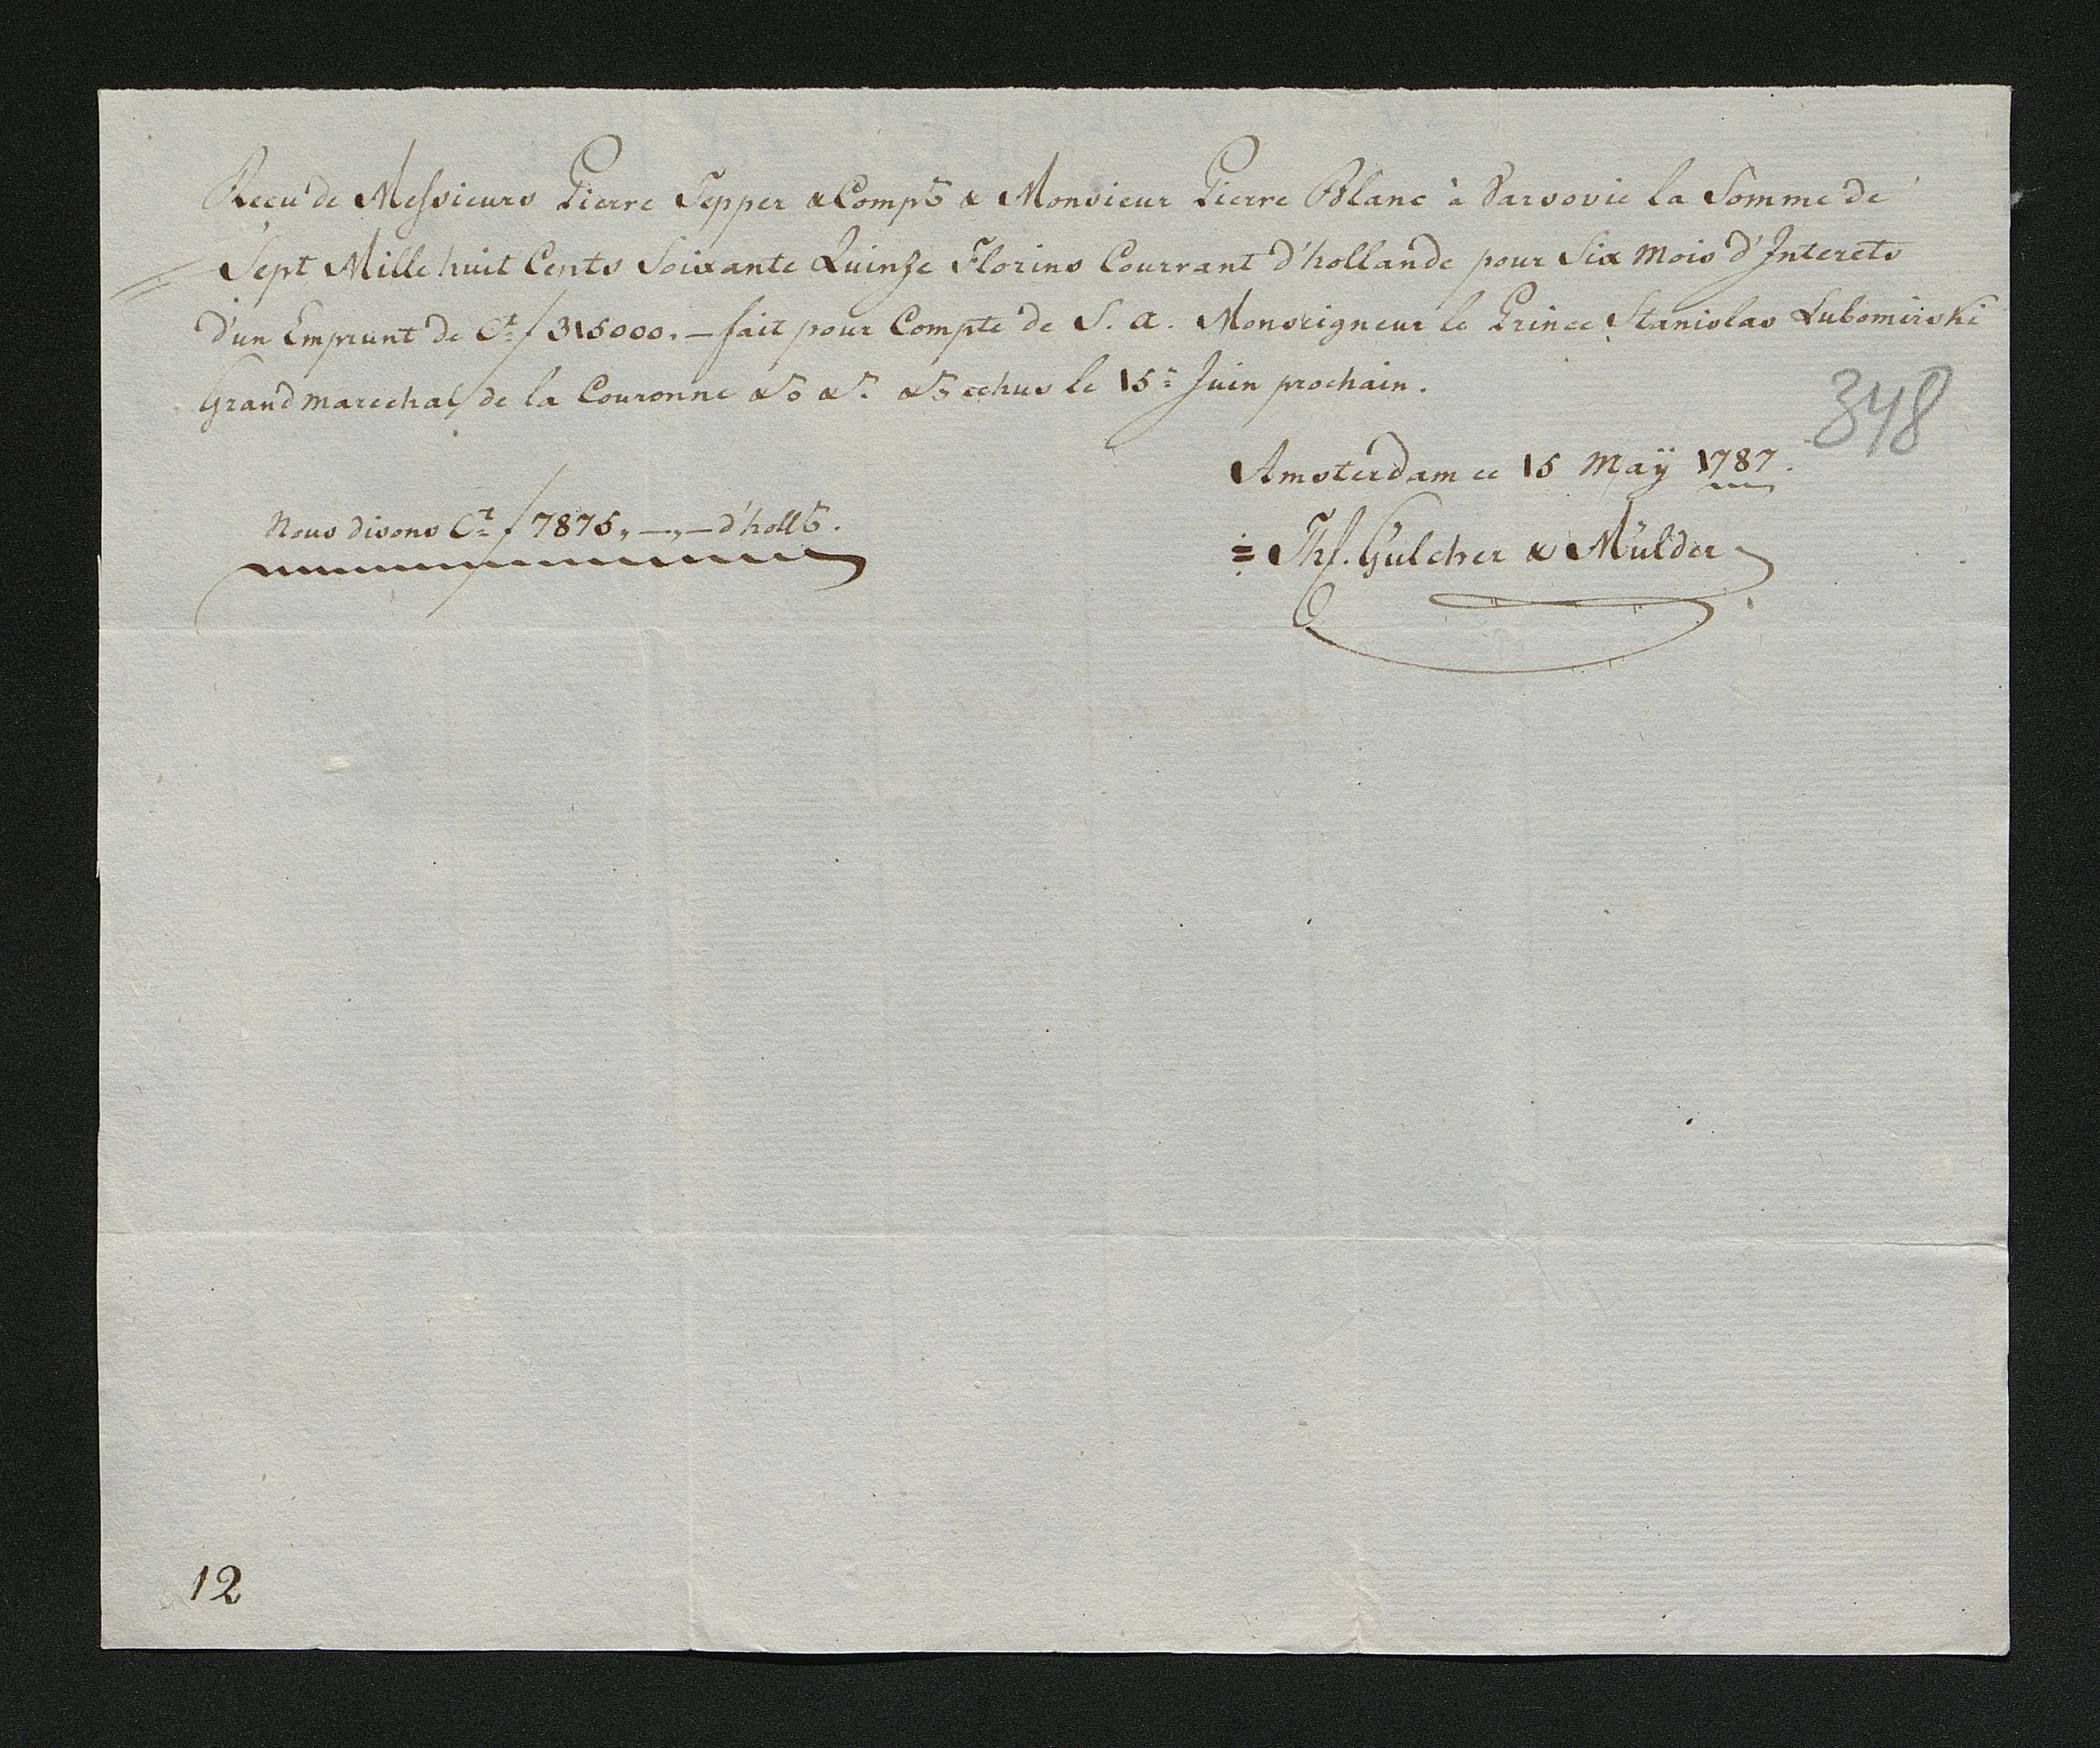 Reçu de Messieurs Pierre Tepper & Compe & Monsieur Pierre Blanc à Varsovie la Somme de
Sept Mille huit Cents Soixante Quinze Florins Courrant d'hollande pour Six Mois d'Interets
d'un Emprunt de Ct f 315000.— fait pour Compte de S. A. Monseigneur le Prince Stanislas Lubomirski
Grand marechal de la Couronne &c &c &c echus le 15e Juin prochain.
348
Amsterdam ce 15 Maÿ 1787.
Nous disons Ct f 7875,—,— d'holle.
Ths. Gülcher & Mülder
12